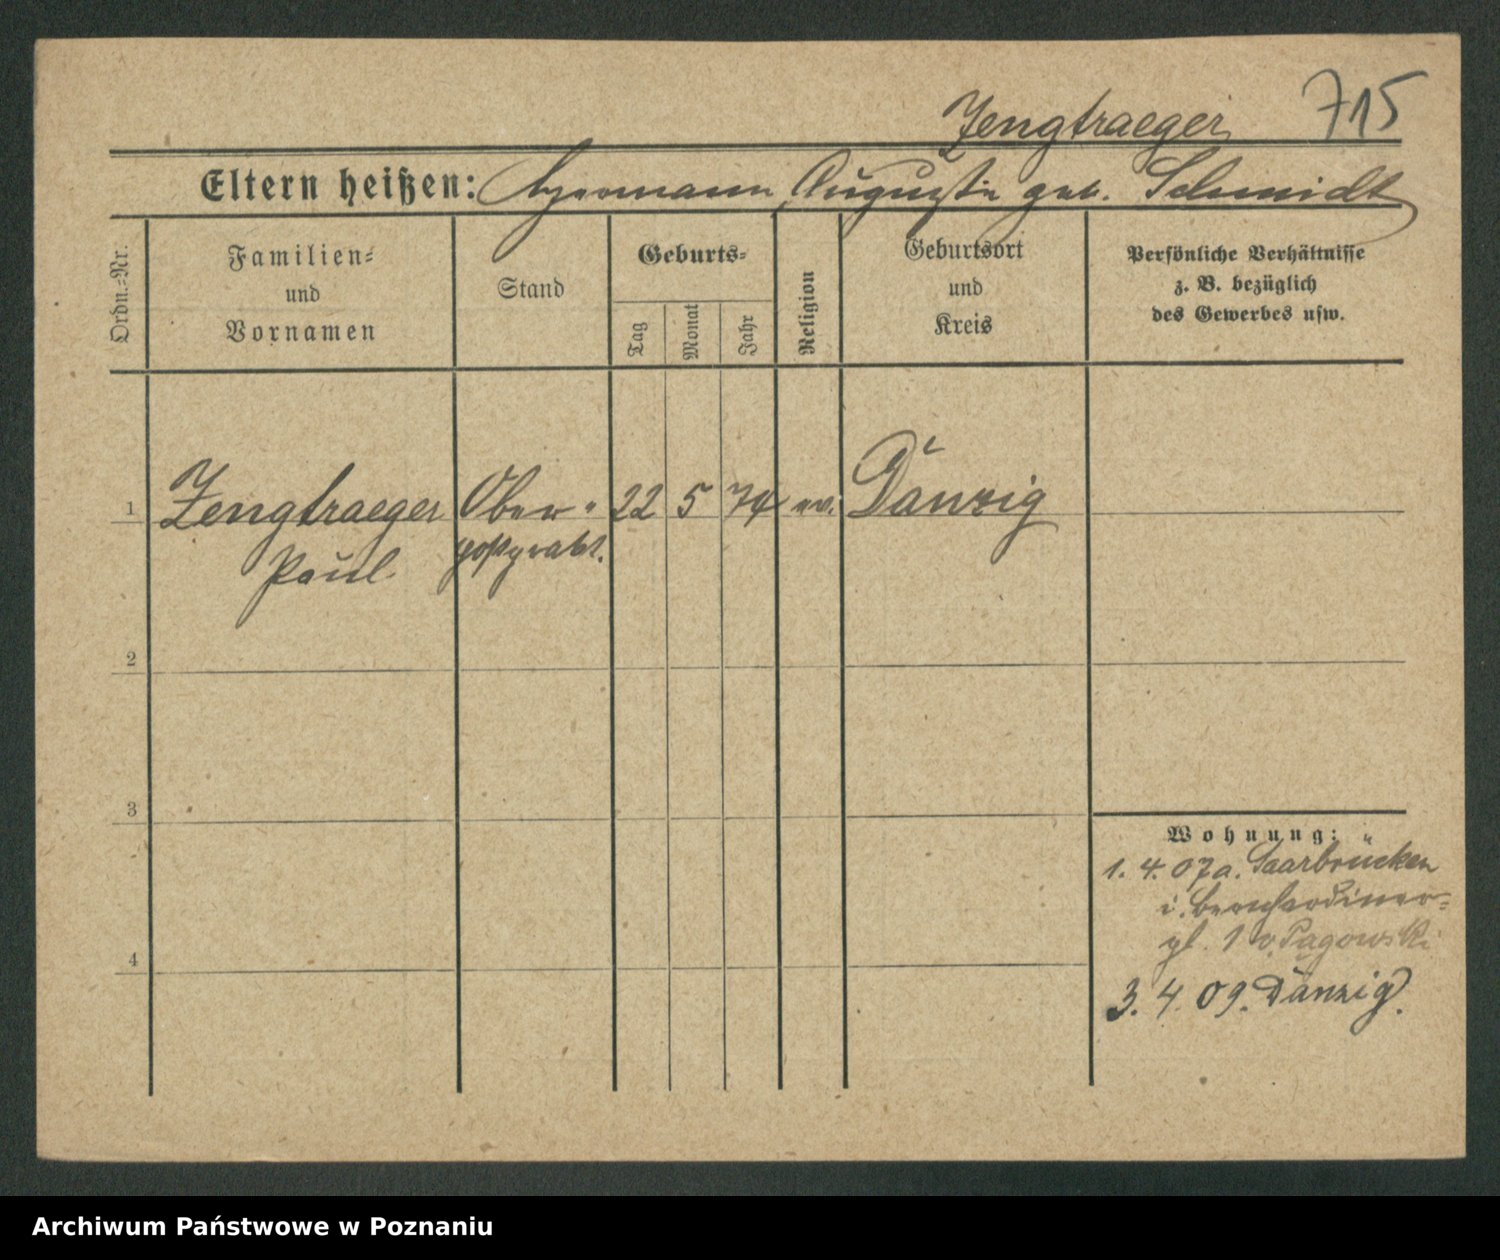 Zengtraeger 715
Eltern heißen: Hermann, Auguste geb. Schmidt
Ordn.=Nr.
Familien=
und
Vornamen
Stand
Geburts=
Tag
Monat
Jahr
Religion
Geburtsort
und
Kreis
Persönliche Verhältnisse
z. B. bezüglich
des Gewerbes usw.
1 Zengtraeger Ober= 22 5 74 ev. Danzig
Paul postprakt.
2
3
Wohnung:
1. 4. 07 a. Saarbrücken
i. Bernhardiner=
pl. 1 v. Pagowski
4
3. 4. 09. Danzig.
Archiwum Państwowe w Poznaniu